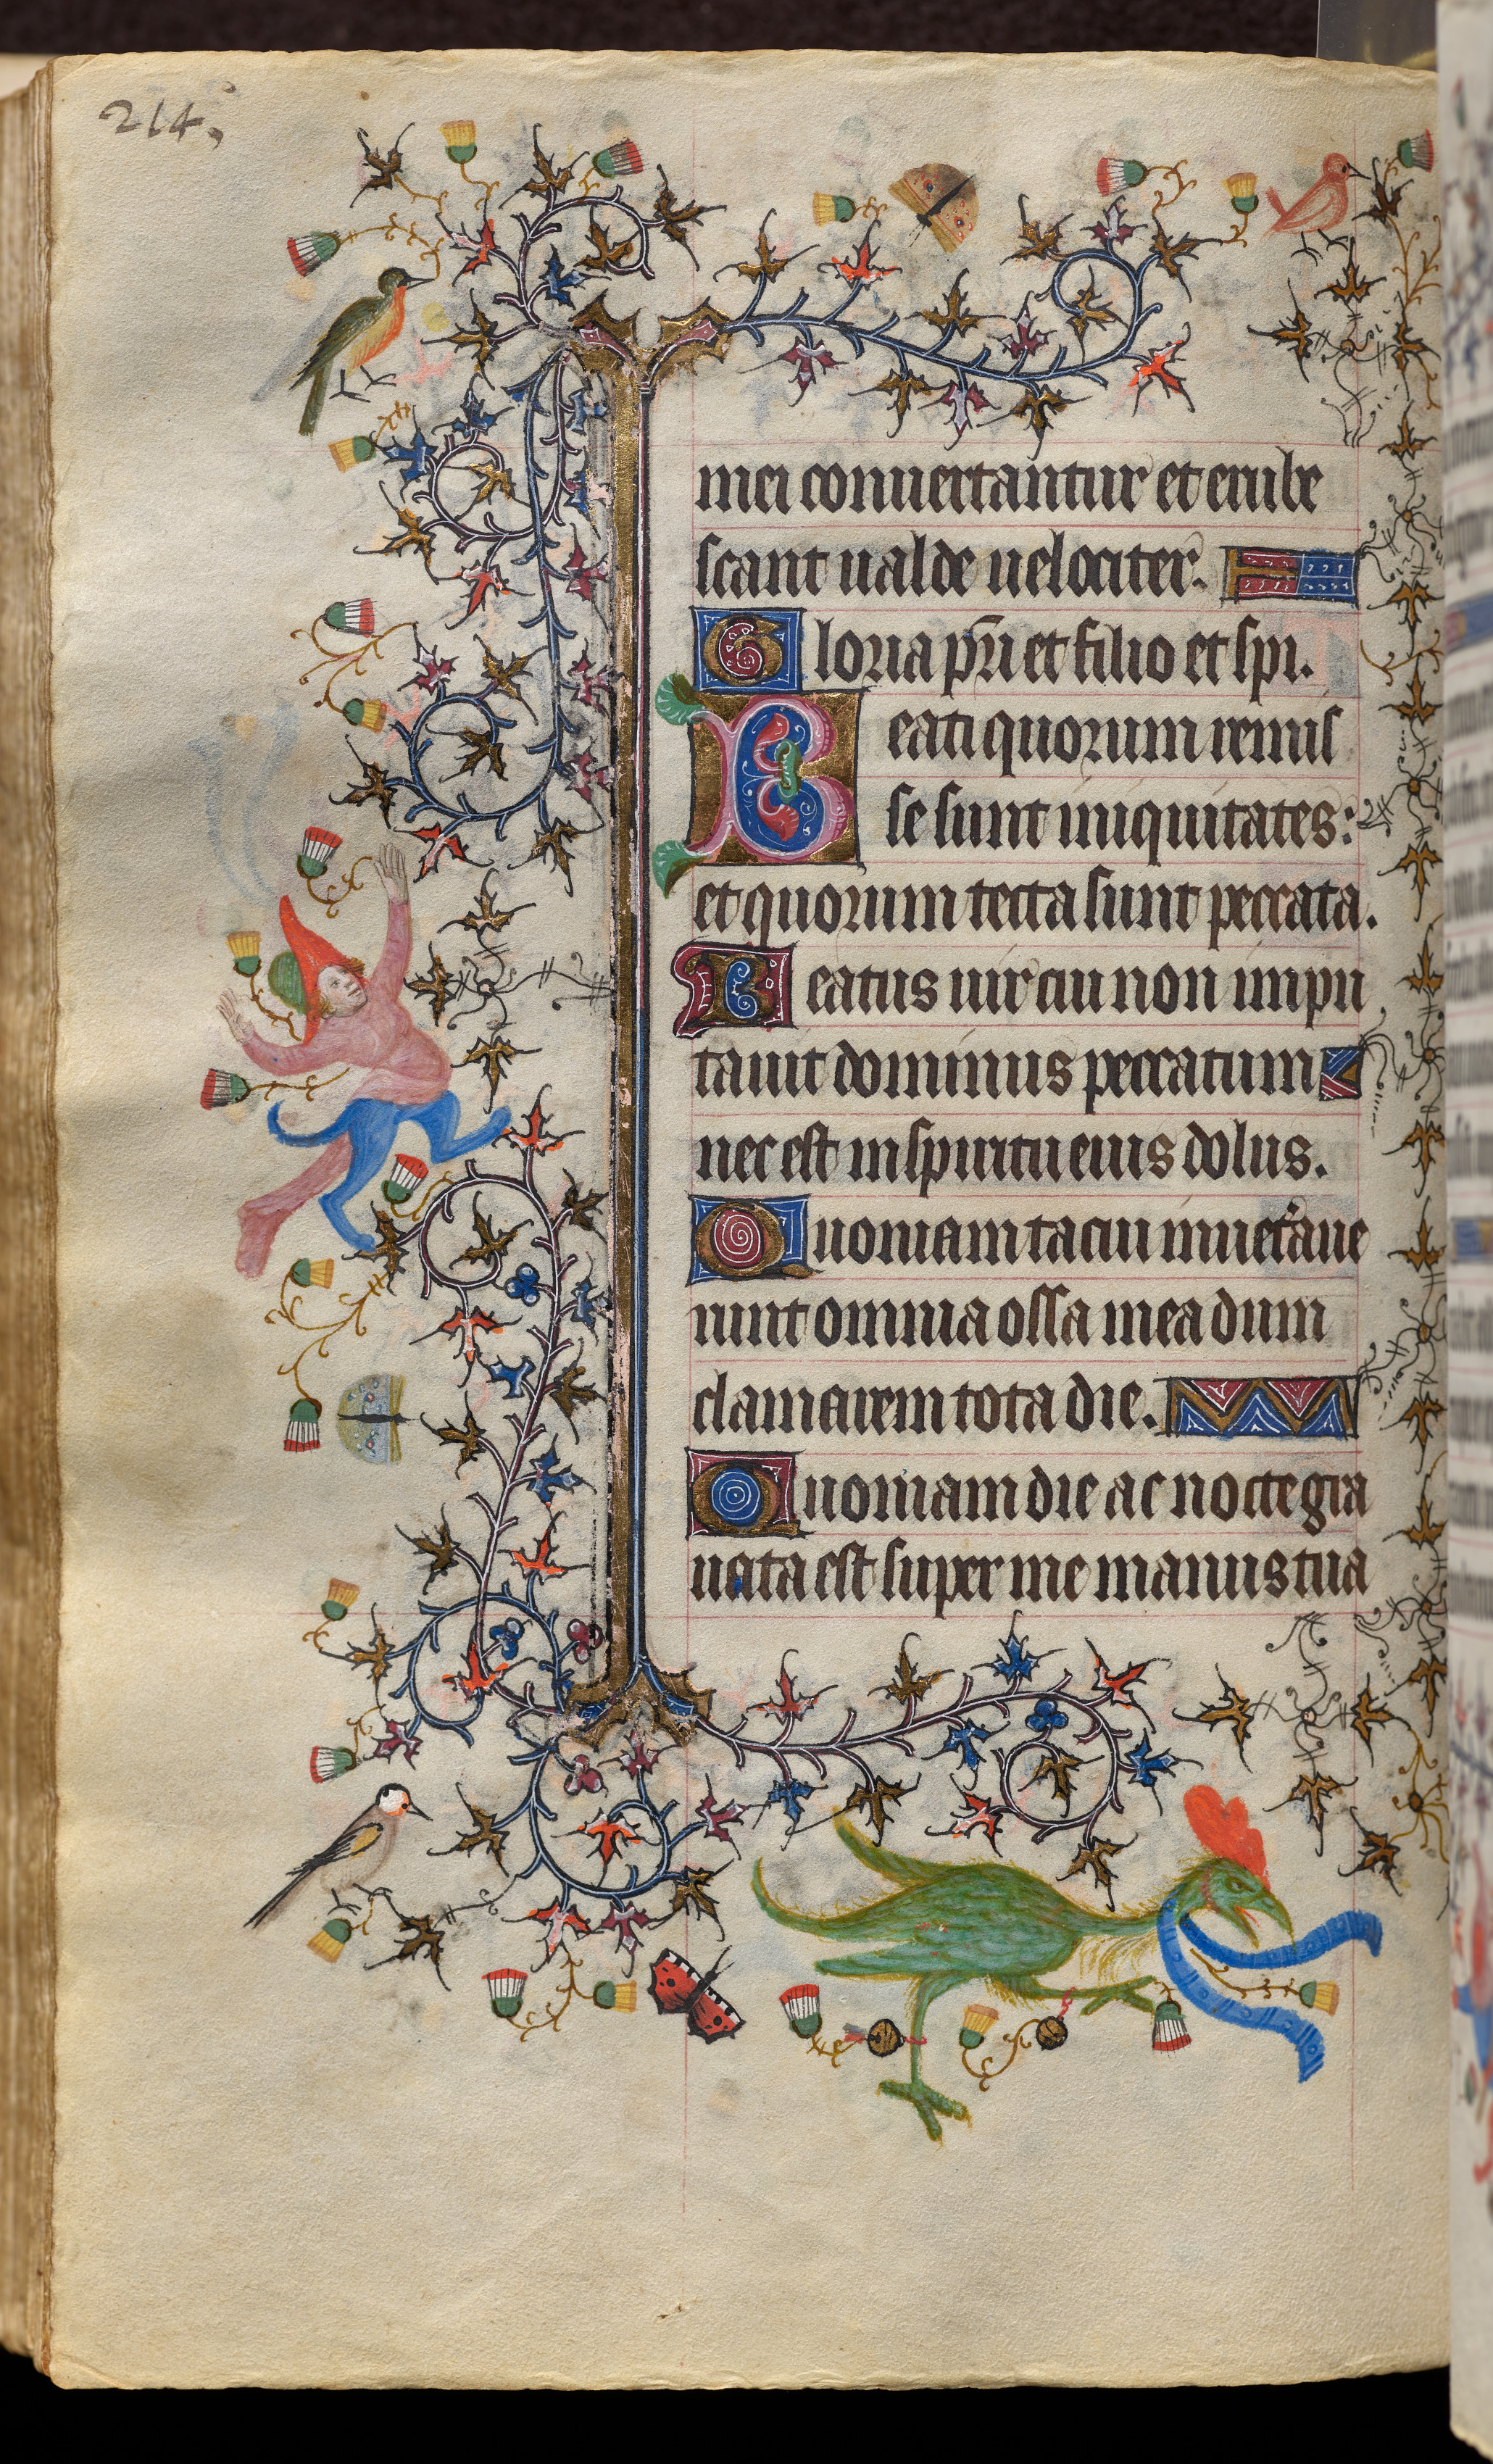 214.
mei conuertantur et erube
scant ualde uelociter.
Gloria pr̄i et filio et spi.
Beati quorum remis
se sunt iniquitates:
et quorum tecta sunt peccata.
Beatus uir cui non impu
tauit dominus peccatum
nec est in spiritu eius dolus.
Quoniam tacui inuet'aue
runt omnia ossa mea dum
clamarem tota die.
Quoniam die ac nocte gra
uata est super me manus tua